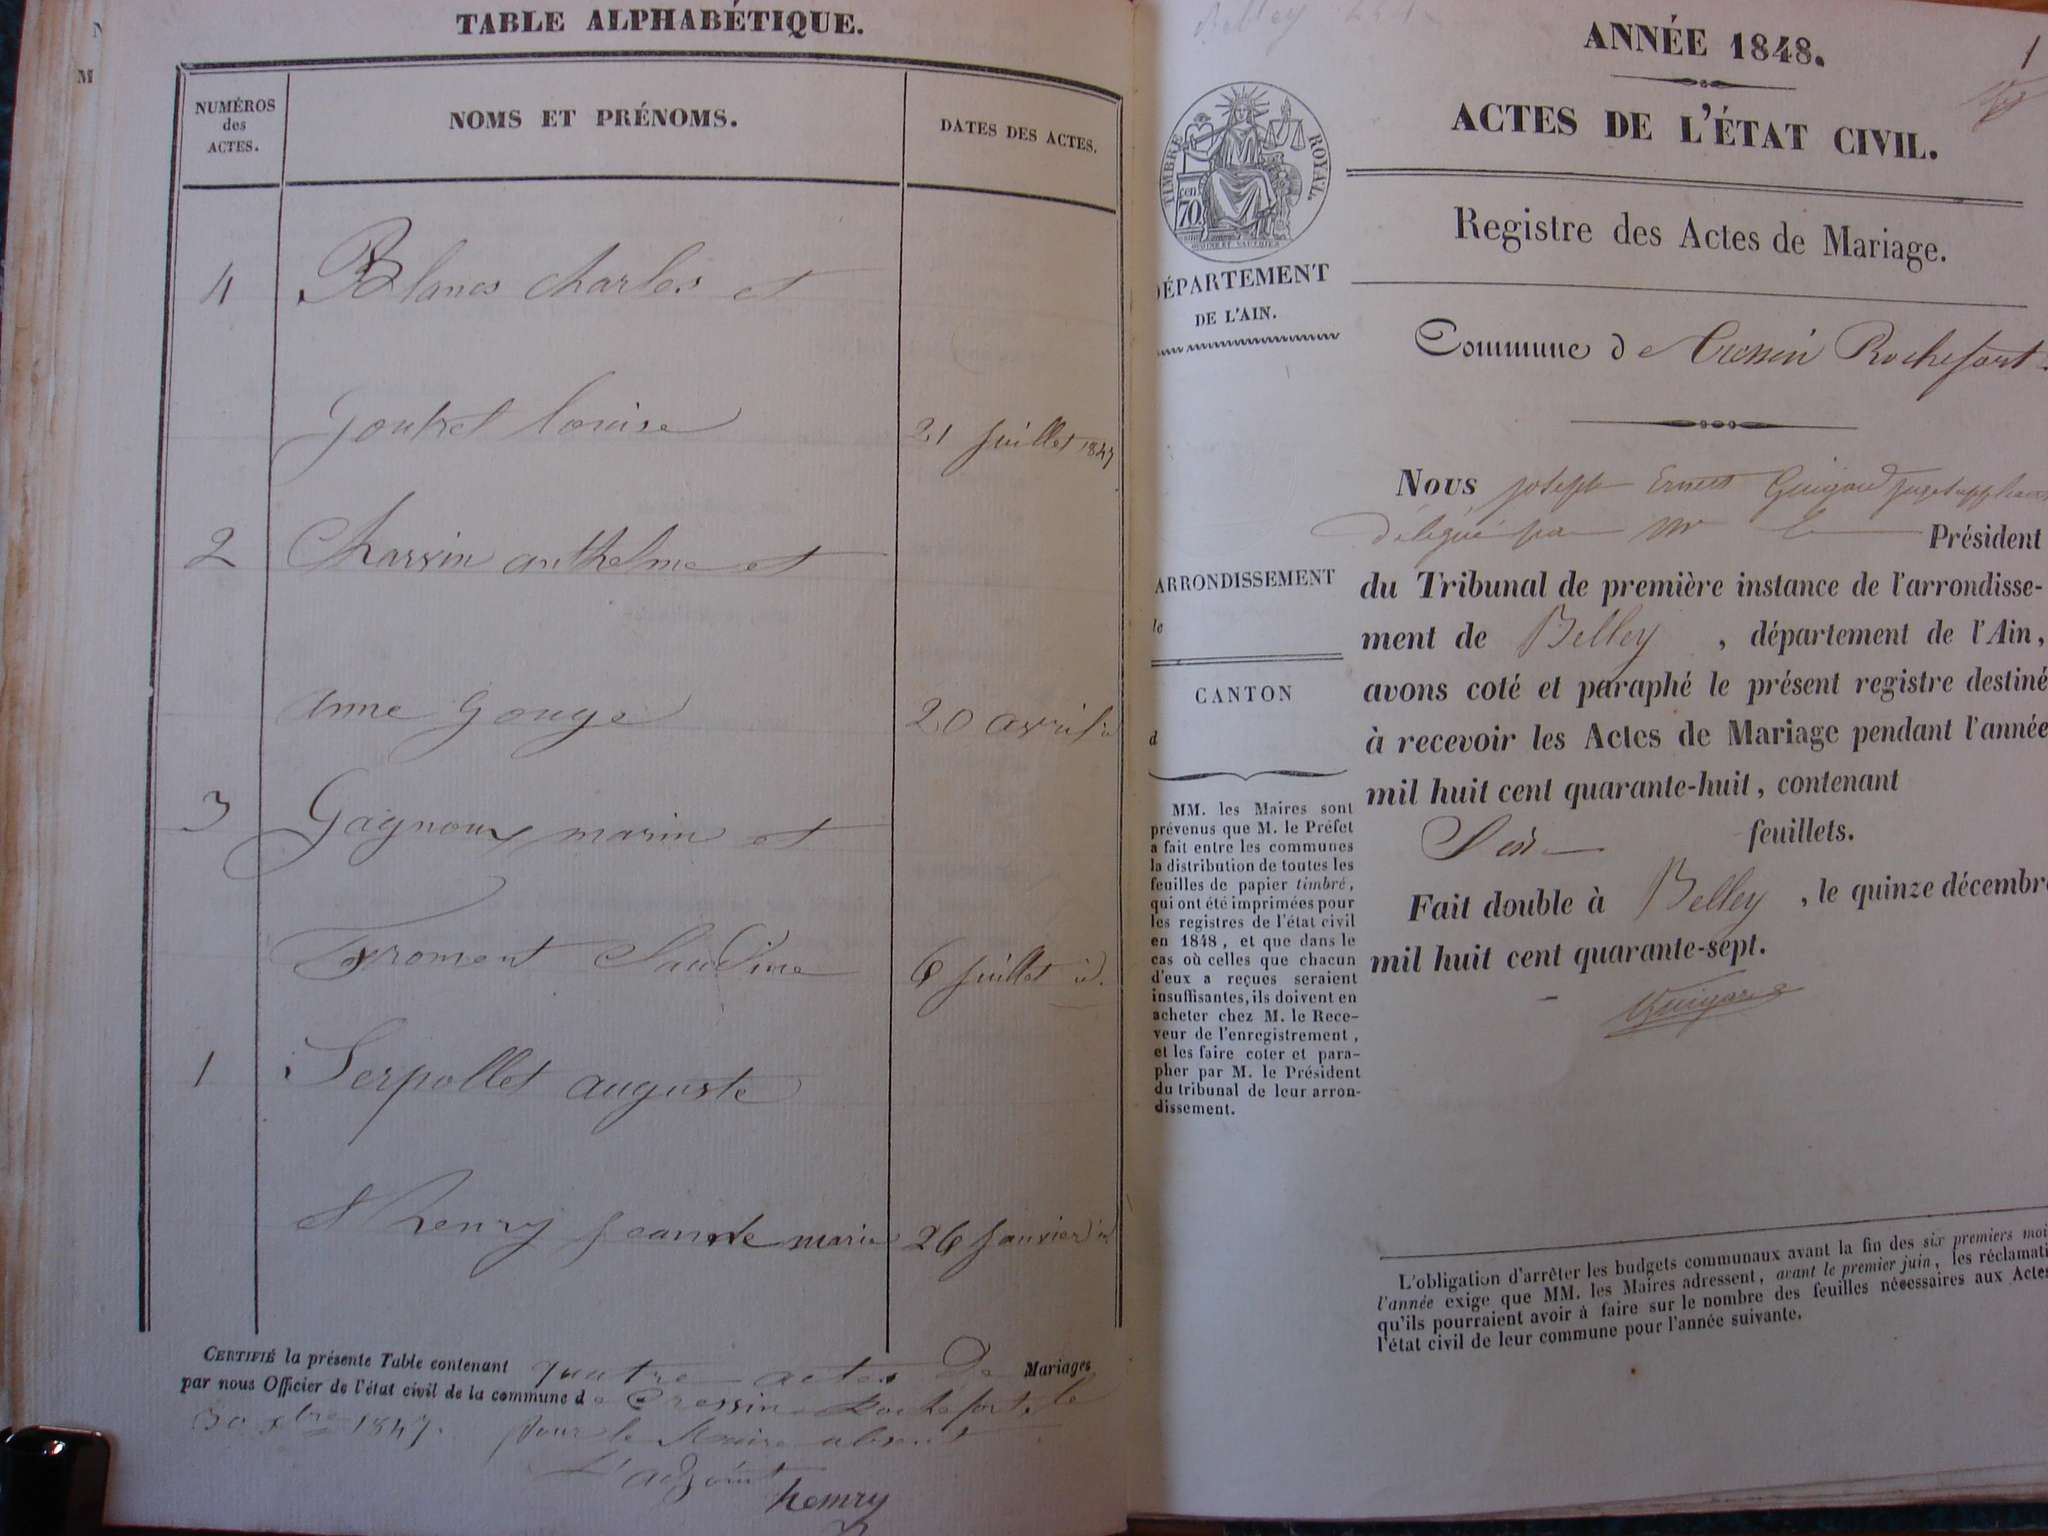 TABLE ALPHABÉTIQUE.
NUMÉROS des ACTES.
NOMS ET PRÉNOMS.
DATES DES ACTES.
4 Blanc Charles et
Goubet louise 21 juillet 1847
2 Charvin anthelme et
anne gouge 20 avril id
3 Gagnoux marin et
Froment Claudine 6 juillet id.
1 Serpollet auguste
et henry jeanne marie 26 janvier id
CERTIFIÉ la présente Table contenant quatre actes De Mariages
par nous Officier de l'état civil de la commune de Cressin Rochefort, le
30 xbre 1847. pour le Maire absent
L'adjoint
henry
Belley
ANNÉE 1848.
1
ACTES DE L'ÉTAT CIVIL.
TIMBRE ROYAL.
cen 70
Registre des Actes de Mariage.
DÉPARTEMENT
DE L'AIN.
Commune de Cressin Rochefort
Nous joseph Ernest Guigard juge suppléant
délégué par Mr le Président
du Tribunal de première instance de l'arrondisse-
ment de Belley, département de l'Ain,
avons coté et paraphé le présent registre destiné
à recevoir les Actes de Mariage pendant l'année
mil huit cent quarante-huit, contenant
Six feuillets.
Fait double à Belley, le quinze décembre
mil huit cent quarante-sept.
Guigard
ARRONDISSEMENT
de
CANTON
d
MM. les Maires sont
prévenus que M. le Préfet
a fait entre les communes
la distribution de toutes les
feuilles de papier timbré,
qui ont été imprimées pour
les registres de l'état civil
en 1848, et que dans le
cas où celles que chacun
d'eux a reçues seraient
insuffisantes, ils doivent en
acheter chez M. le Rece-
veur de l'enregistrement,
et les faire coter et para-
pher par M. le Président
du tribunal de leur arron-
dissement.
L'obligation d'arrêter les budgets communaux avant la fin des six premiers moi
l'année exige que MM. les Maires adressent, avant le premier juin, les réclamati
qu'ils pourraient avoir à faire sur le nombre des feuilles nécessaires aux Actes
l'état civil de leur commune pour l'année suivante.